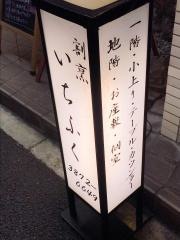 一階・小上り・テーブル・カウンター
地階・お座敷・個室
割烹
いちふく
3872-
6649